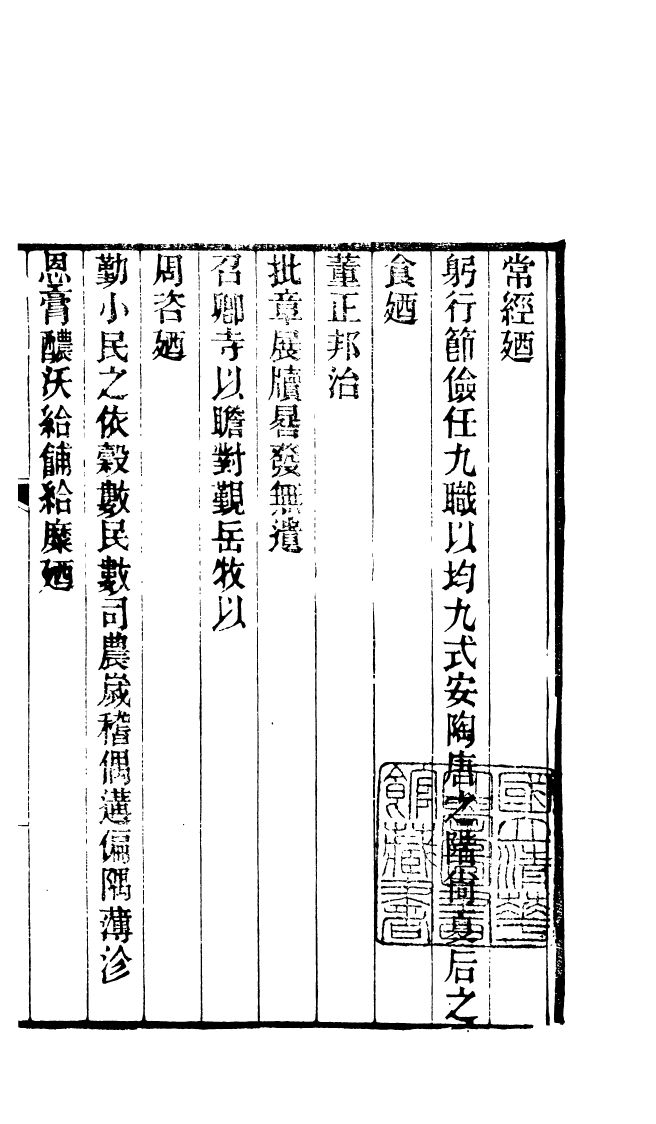 常經廼
躬行節儉任九職以均九式安陶唐之階尙夏后之
食廼
董正邦治
批章展牘晷發無遺
召卿寺以瞻對覲岳牧以
周咨廼
勤小民之依穀數民數司農歲稽偶遘偏隅薄沴
恩膏醲沃給餔給糜廼
國立清華
大學圖書
館藏書